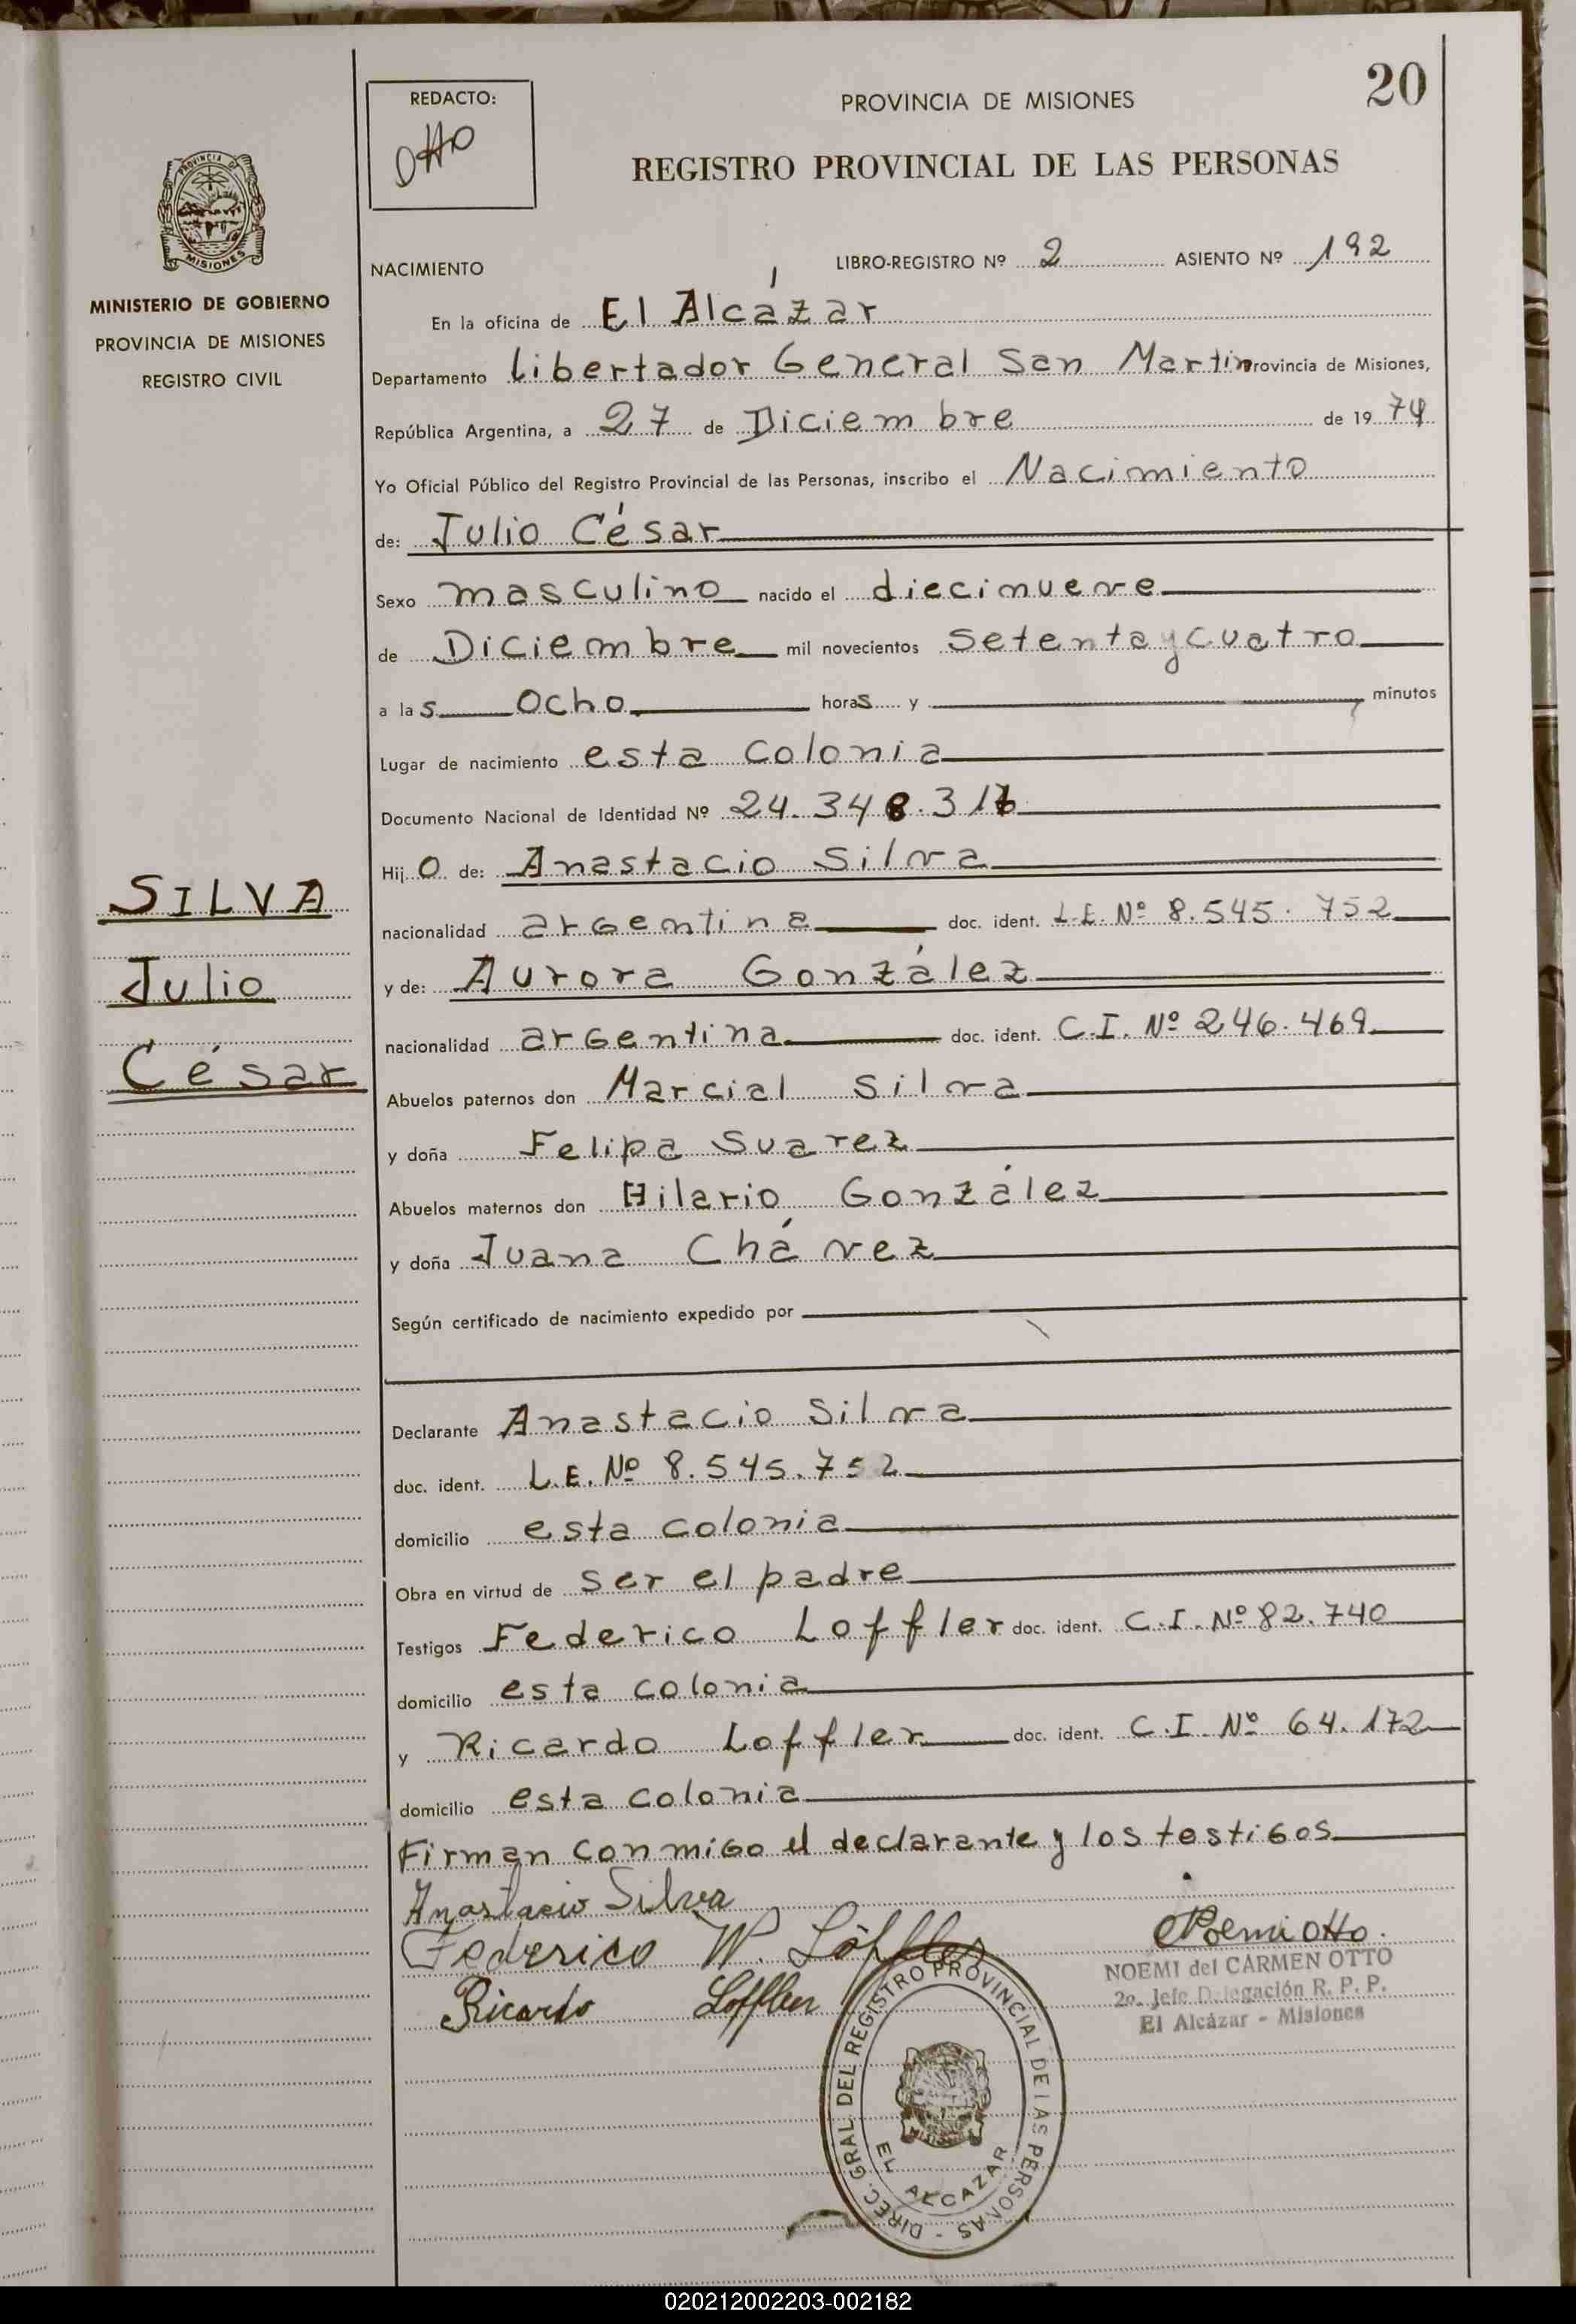 20
REDACTO:
Otto
PROVINCIA DE MISIONES
REGISTRO PROVINCIAL DE LAS PERSONAS
PROVINCIA DE
MISIONES
MINISTERIO DE GOBIERNO
PROVINCIA DE MISIONES
REGISTRO CIVIL
NACIMIENTO
LIBRO-REGISTRO Nº 2 ASIENTO Nº 192
En la oficina de El Alcázar
Departamento Libertador General San Martin Provincia de Misiones,
República Argentina, a 27 de Diciembre de 19 74
Yo Oficial Público del Registro Provincial de las Personas, inscribo el Nacimiento
de: Julio César
Sexo masculino nacido el diecinueve
de Diciembre mil novecientos setenta y cuatro
a las ocho horas y minutos
Lugar de nacimiento esta colonia
Documento Nacional de Identidad Nº 24.348.316
Hijo de: Anastacio Silva
SILVA
nacionalidad argentina doc. ident. L.E. Nº 8.545.752
Julio
y de: Aurora González
César
nacionalidad argentina doc. ident. C.I. Nº 246.469
Abuelos paternos don Marcial Silva
y doña Felipa Suarez
Abuelos maternos don Hilario González
y doña Juana Chávez
Según certificado de nacimiento expedido por
Declarante Anastacio Silva
doc. ident. L.E. Nº 8.545.752
domicilio esta colonia
Obra en virtud de ser el padre
Testigos Federico Loffler doc. ident. C.I. Nº 82.740
domicilio esta colonia
y Ricardo Loffler doc. ident. C.I. Nº 64.172
domicilio esta colonia
Firman conmigo el declarante y los testigos
Anastacio Silva
Federico W. Löffler
Noemi Otto.
Ricardo Loffler
NOEMI del CARMEN OTTO
2o. Jefe Delegación R. P. P.
El Alcázar - Misiones
DIREC. GRAL. DEL REGISTRO PROVINCIAL DE LAS PERSONAS -
EL ALCAZAR
020212002203-002182